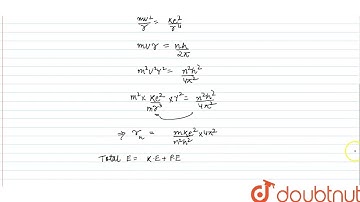 mv²/r = Ke²/r⁴
mvr = nh/2π
m²v²r² = n²h²/4π²
m² x Ke²/mr³ x r² = n²h²/4π²
⇒ rₙ = mke²/n²h² x 4π²
Total E = K.E + P.E
doubtnut